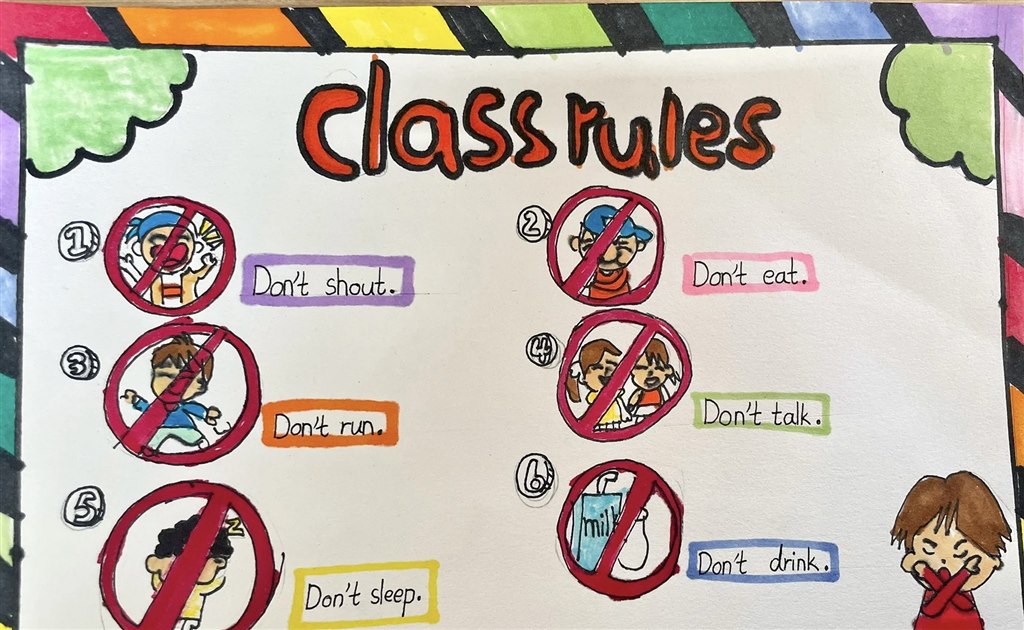 Class rules
1 Don't shout.
2 Don't eat.
3 Don't run.
4 Don't talk.
5 Don't sleep.
z
6 Don't drink.
milk